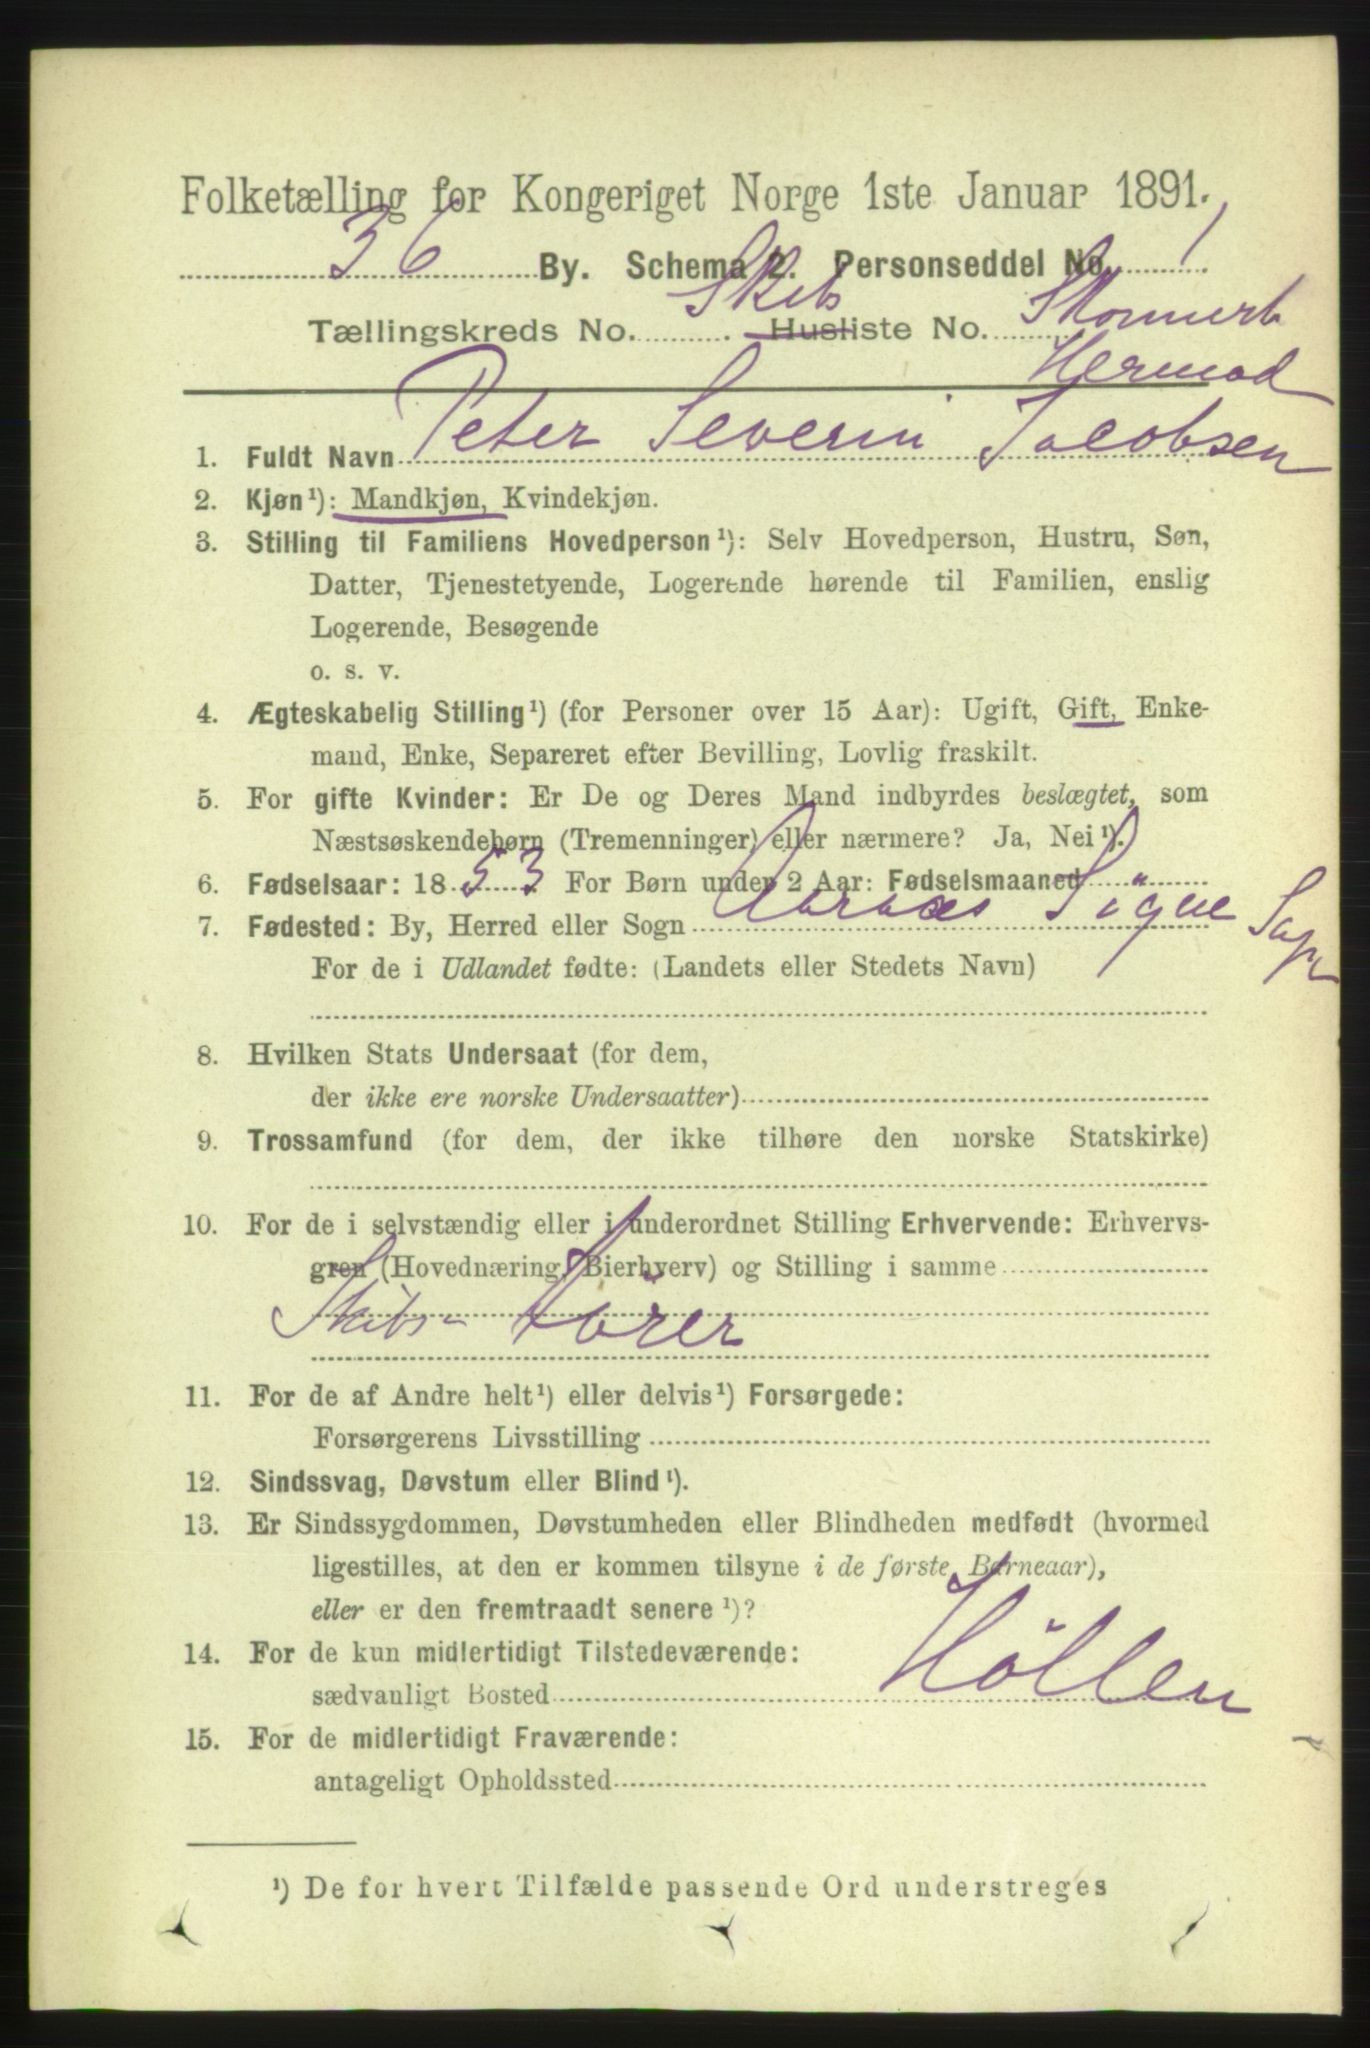 Folketælling for Kongeriget Norge 1ste Januar 1891.
36 By. Schema 2. Personseddel No. 1
Tællingskreds No. Skibs Husliste No. Skonnert
Hermod
1. Fuldt Navn Peter Severin Jacobsen
2. Kjøn¹): Mandkjøn, Kvindekjøn.
3. Stilling til Familiens Hovedperson¹): Selv Hovedperson, Hustru, Søn,
Datter, Tjenestetyende, Logerende hørende til Familien, enslig
Logerende, Besøgende
o. s. v.
4. Ægteskabelig Stilling¹) (for Personer over 15 Aar): Ugift, Gift, Enke-
mand, Enke, Separeret efter Bevilling, Lovlig fraskilt.
5. For gifte Kvinder: Er De og Deres Mand indbyrdes beslægtet, som
Næstsøskendebørn (Tremenninger) eller nærmere? Ja, Nei¹).
6. Fødselsaar: 1853 For Børn under 2 Aar: Fødselsmaaned
7. Fødested: By, Herred eller Sogn Aaraas Sögne
For de i Udlandet fødte: (Landets eller Stedets Navn)
8. Hvilken Stats Undersaat (for dem,
der ikke ere norske Undersaatter)
9. Trossamfund (for dem, der ikke tilhøre den norske Statskirke)
10. For de i selvstændig eller i underordnet Stilling Erhvervende: Erhvervs-
gren (Hovednæring, Bierhverv) og Stilling i samme
Skibs- förer
11. For de af Andre helt¹) eller delvis¹) Forsørgede:
Forsørgerens Livsstilling
12. Sindssvag, Døvstum eller Blind¹).
13. Er Sindssygdommen, Døvstumheden eller Blindheden medfødt (hvormed
ligestilles, at den er kommen tilsyne i de første Barneaar),
eller er den fremtraadt senere¹)?
14. For de kun midlertidigt Tilstedeværende:
sædvanligt Bosted Höllen
15. For de midlertidigt Fraværende:
antageligt Opholdssted
¹) De for hvert Tilfælde passende Ord understreges